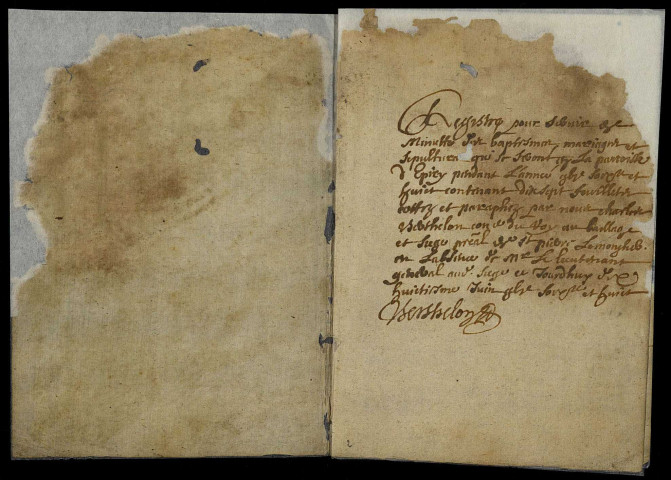 Registre pour servir de
Minutte des baptismes, mariages et
sepultures qui se feront en la parroisse
d'Epiry pendant l'année
huict contenant dix sept feuilletz
cottez et paraphez par nous Charles
Berthelon du Roy au bailliage
et siege de St pierre
en l'absence de Mr le lieutenant
general aud. siege ce jourdhuy
huictiesme Juin et huict
Berthelon